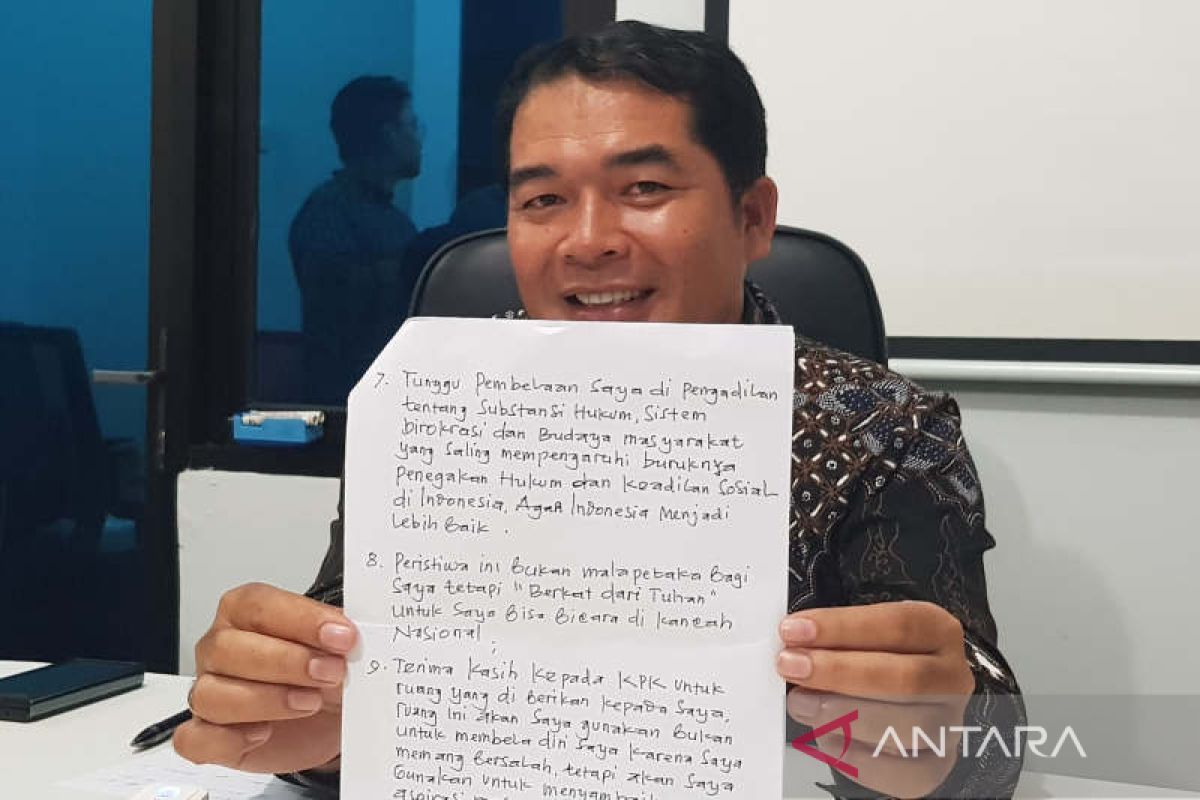 7. Tunggu Pembelaan Saya di Pengadilan
tentang Substansi Hukum, Sistem
birokrasi dan Budaya masyarakat
yang Saling mempengaruhi buruknya
Penegakan Hukum dan Keadilan Sosial
di Indonesia, Agar Indonesia Menjadi
Lebih Baik.
8. Peristiwa ini Bukan malapetaka Bagi
Saya tetapi "Berkat dari Tuhan"
Untuk Saya Bisa Bicara di Kancah
Nasional;
9. Terima Kasih Kepada KPK Untuk
ruang yang di berikan Kepada Saya,
ruang ini akan Saya gunakan Bukan
Untuk membela diri Saya Karena Saya
memang Bersalah, tetapi akan Saya
Gunakan Untuk
aspirasi
ANTARA